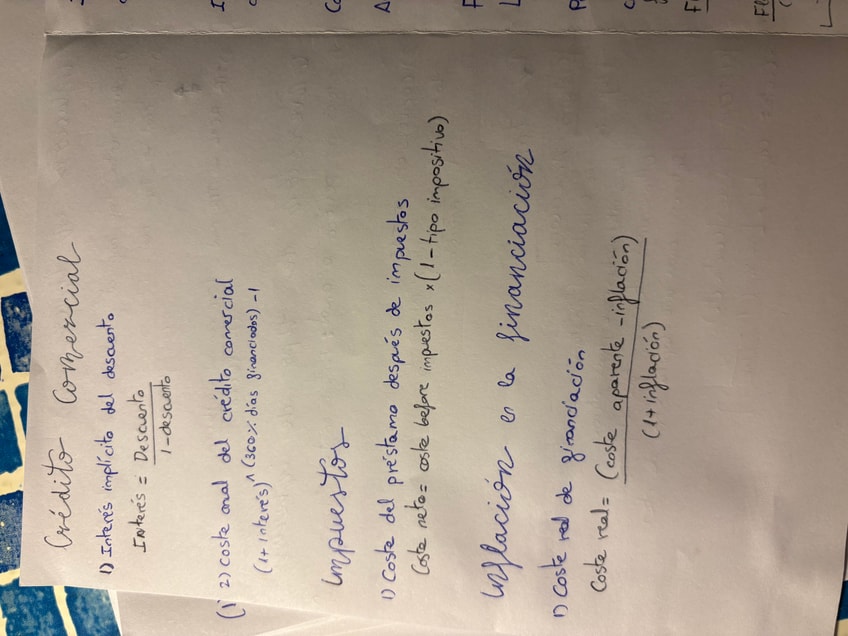 Crédito Comercial
1) Interés implícito del descuento
Interés = Descuento
1 - descuento
(1 2) coste anal del crédito comercial
(1 + interés)^(360 % días financiados) - 1
Impuestos
1) Coste del préstamo después de impuestos
Coste neto = coste before impuestos x (1 - tipo impositivo)
Inflación en la financiación
1) Coste real de financiación
Coste real = (coste aparente - inflación)
(1 + inflación)